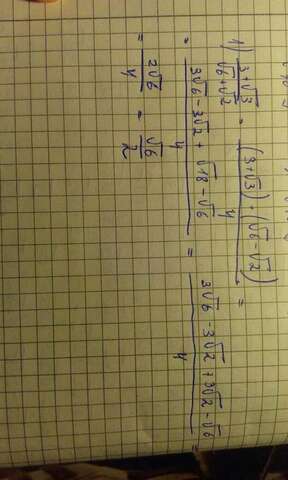 1) (3+√3)/(√6+√2) = ((3+√3)·(√6-√2))/4 =
= (3√6-3√2+√18-√6)/4 = (3√6-3√2+3√2-√6)/4 =
= 2√6/4 = √6/2